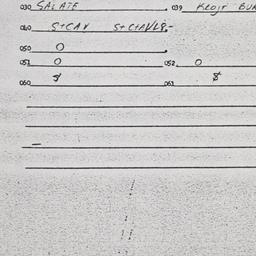 030 SALATE 039 KLOJT BUR
040 S+CAV S+CAVLS-
050 O
051 O 052 O
060 $ 061 $